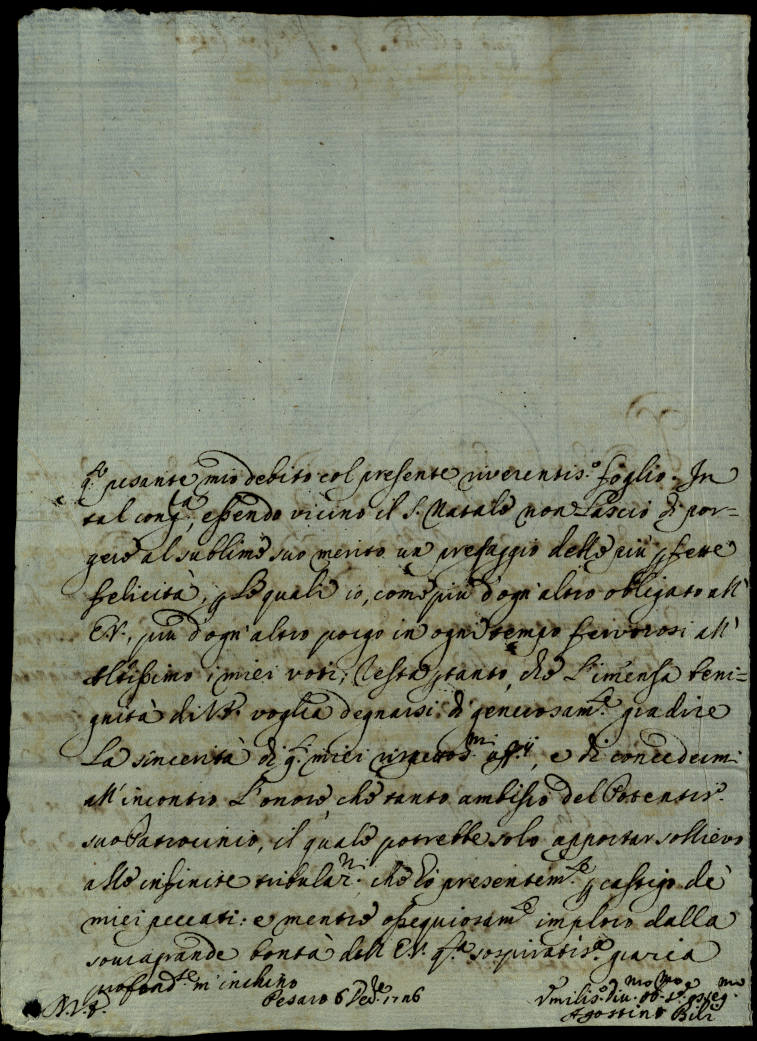 q.to pesante mio debito col presente riverentis.o foglio. In
tal cong.ra, essendo vicino il S. Natale non Lascio di por=
gere al sublime suo merito un presaggio delle più pfette
felicità, p Le quali io, come più d'ogn'altro obligato all'
E.V., più d'ogn'altro porgo in ogni tempo fervorosi all'
Altissimo i miei voti; Resta ptanto, che L'imensa beni=
gnità di V.E. voglia degnarsi di generosam.te gradire
La sincerità di q.ti miei rispettos.mi uff.ij, e di concedermi
all'incontro L'onore che tanto ambisco del Potentis.o
suo Patrocinio, il quale potrebbe solo apportar sollievo
alle infinite tribulaz.ni che ho presentem.te p castigo de
miei peccati: e mentre ossequiosam.te imploro dalla
sovragrande bontà dell'E.V. q.sta sospiratis.a grazia
profond.te m'inchino
Pesaro 6 Dec.e 1726
Vmilis.o Div.mo Ob.mo Se.re osseq.mo
Agostino